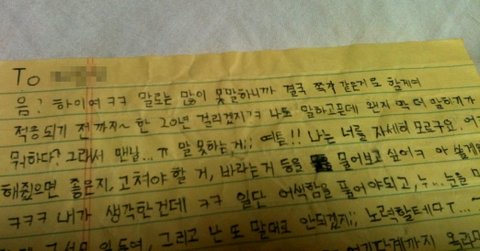 To
음? 하이여 ㅋㅋ 말로는 많이 못말하니까 결국 쪽지 같은거로 할게여
적응되기 전까지~ 한 20년 걸리겠지? ㅋ 나도 말하고픈데 왠지 말 더 말하기가
뭐하다? 그래서 맨날..ㅠ 말 못하는게;; 여튼!! 나는 너를 자세히 모르구요.
해줬으면 좋은지, 고쳐야 할 거, 바라는거 등을 물어보고 싶어ㅋ 아
ㅋㅋㅋ 내가 생각한건데 ㅋㅋ 일단 어색함을 풀어야되고, 누... 눈을
그리고 난 또 말대로 안되겠지;; 노력할테다ㅜ...~